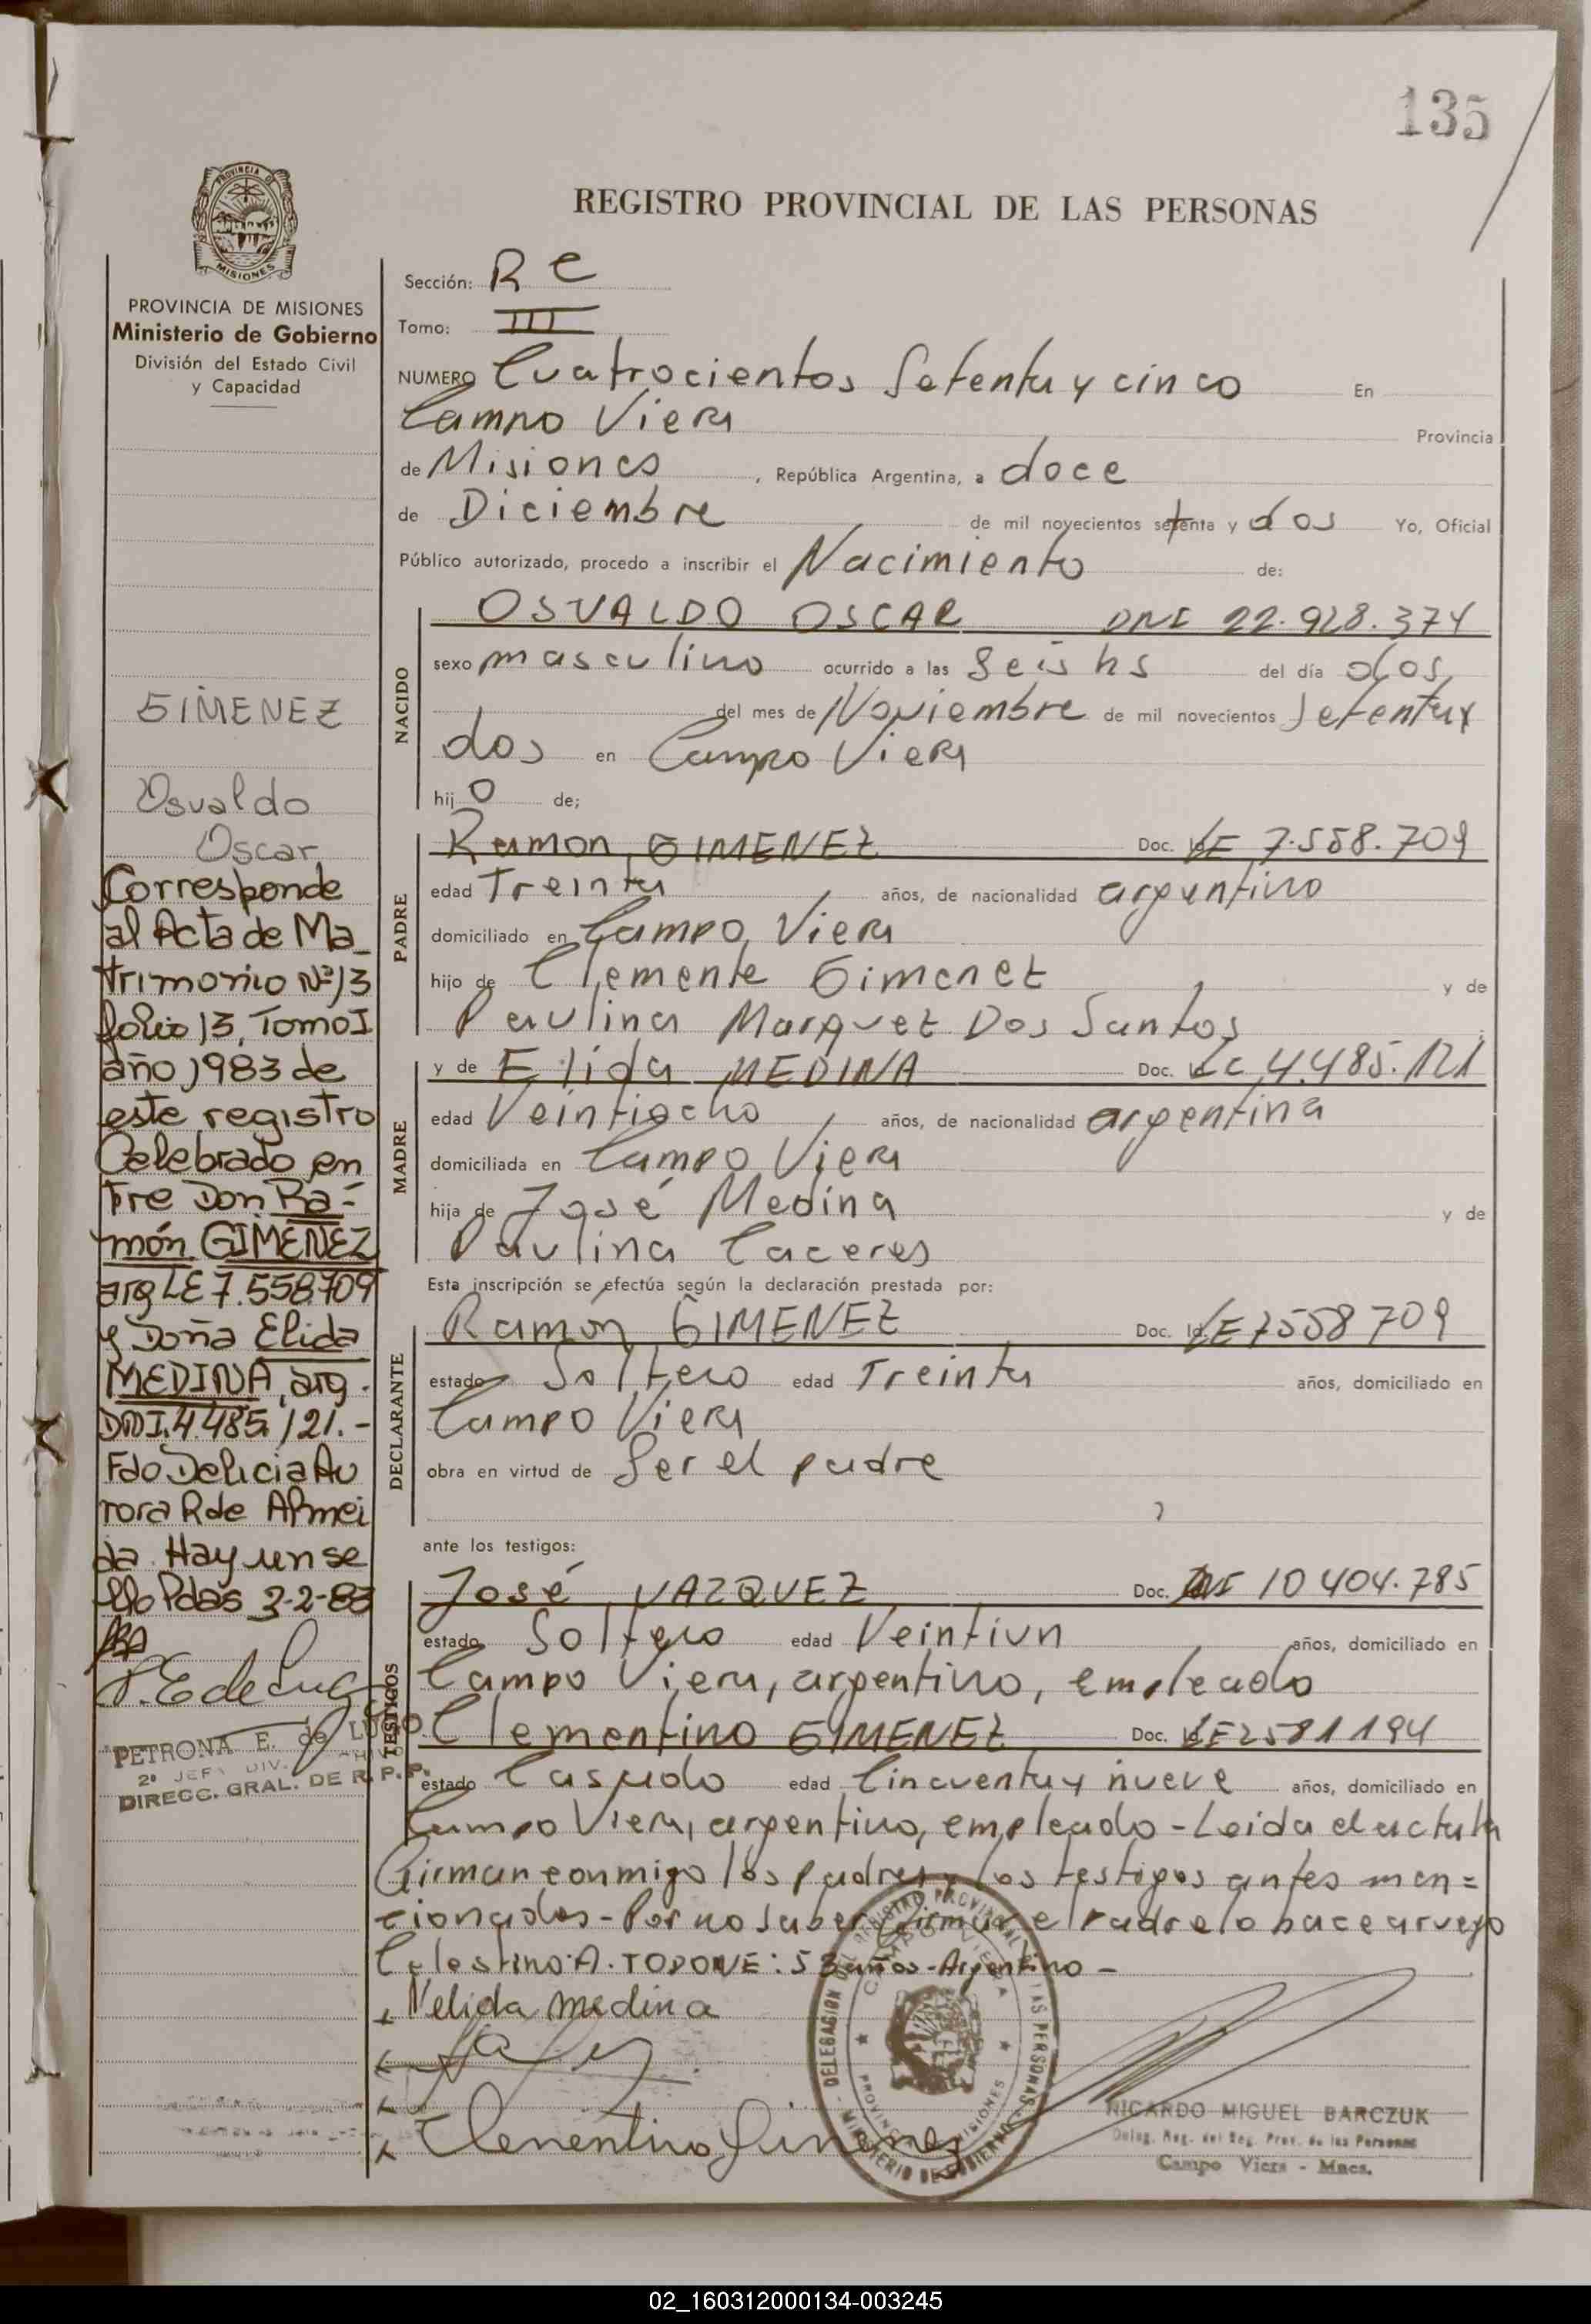 135
REGISTRO PROVINCIAL DE LAS PERSONAS
PROVINCIA DE
MISIONES
PROVINCIA DE MISIONES
Ministerio de Gobierno
División del Estado Civil
y Capacidad
GIMENEZ
Osvaldo
Oscar
Corresponde
al Acta de Ma
trimonio Nº 13
folio 13, Tomo I
año 1983 de
este registro
Celebrado en
tre Don Ra-
món GIMENEZ
arg LE 7.558.709
y Doña Elida
MEDINA, arg.
DNI. 4.485.121.-
Fdo Delicia Au
rora R de Almei
da. Hay un se
llo Pdas 3-2-83
PETRONA E. de LUGO
2º JEFA DIV.
DIRECC. GRAL. DE R. P. P.
Sección: R e
Tomo: III
NUMERO Cuatrocientos Setenta y cinco En
Campo Viera Provincia
de Misiones, República Argentina, a doce
de Diciembre de mil novecientos setenta y dos Yo, Oficial
Público autorizado, procedo a inscribir el Nacimiento de:
NACIDO
OSVALDO OSCAR DNI 22.928.374
sexo masculino ocurrido a las Seis hs del día dos
del mes de Noviembre de mil novecientos Setenta y
dos en Campo Viera
hijo de;
PADRE
Ramon, GIMENEZ Doc. LE 7.558.709
edad Treinta años, de nacionalidad argentino
domiciliado en Campo Viera
hijo de Clemente Gimenez y de
Paulina Marquez Dos Santos
MADRE
y de Elida MEDINA Doc. LC 4.485.121
edad Veintiocho años, de nacionalidad argentina
domiciliada en Campo Viera
hija de José Medina y de
Paulina Caceres
Esta inscripción se efectúa según la declaración prestada por:
DECLARANTE
Ramón GIMENEZ Doc. Id. LE 7558709
estado Soltero edad Treinta años, domiciliado en
Campo Viera
obra en virtud de Ser el padre
ante los testigos:
TESTIGOS
José VAZQUEZ Doc. DNI 10404.785
estado Soltero edad Veintiun años, domiciliado en
Campo Viera, argentino, empleado
Clementino GIMENEZ Doc. LE 2581194
estado Casado edad Cincuenta y nueve años, domiciliado en
Campo Viera, argentino, empleado - Leida el acta la
firman conmigo los padres y los testigos antes men=
cionados - Por no saber firmar el Padre lo hace a ruego
Celestino A. TODONE: 53 años - Argentino -
Nelida medina
Clementino Gimenez
DELEGACION DEL REGISTRO PROVINCIAL DE LAS PERSONAS
CAMPO VIERA
PROVINCIA MISIONES
MINISTERIO DE GOBIERNO
RICARDO MIGUEL BARCZUK
Deleg. Reg. del Reg. Prov. de las Personas
Campo Viera - Mnes.
02_160312000134-003245